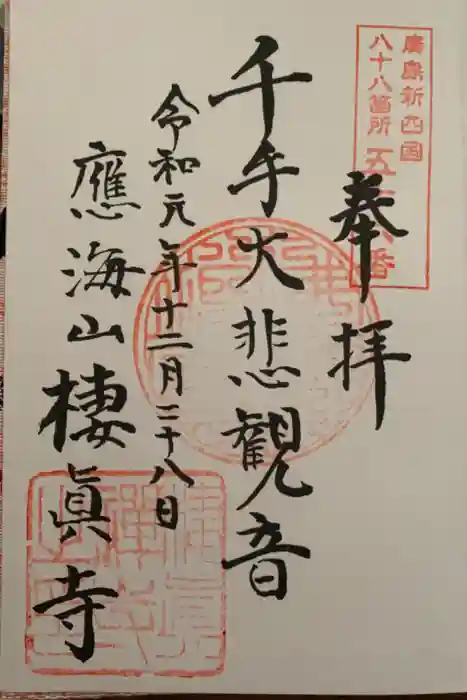 廣島新四国
八十八箇所
奉拝
千手大悲観音
令和元年十二月二十八日
應海山棲眞寺